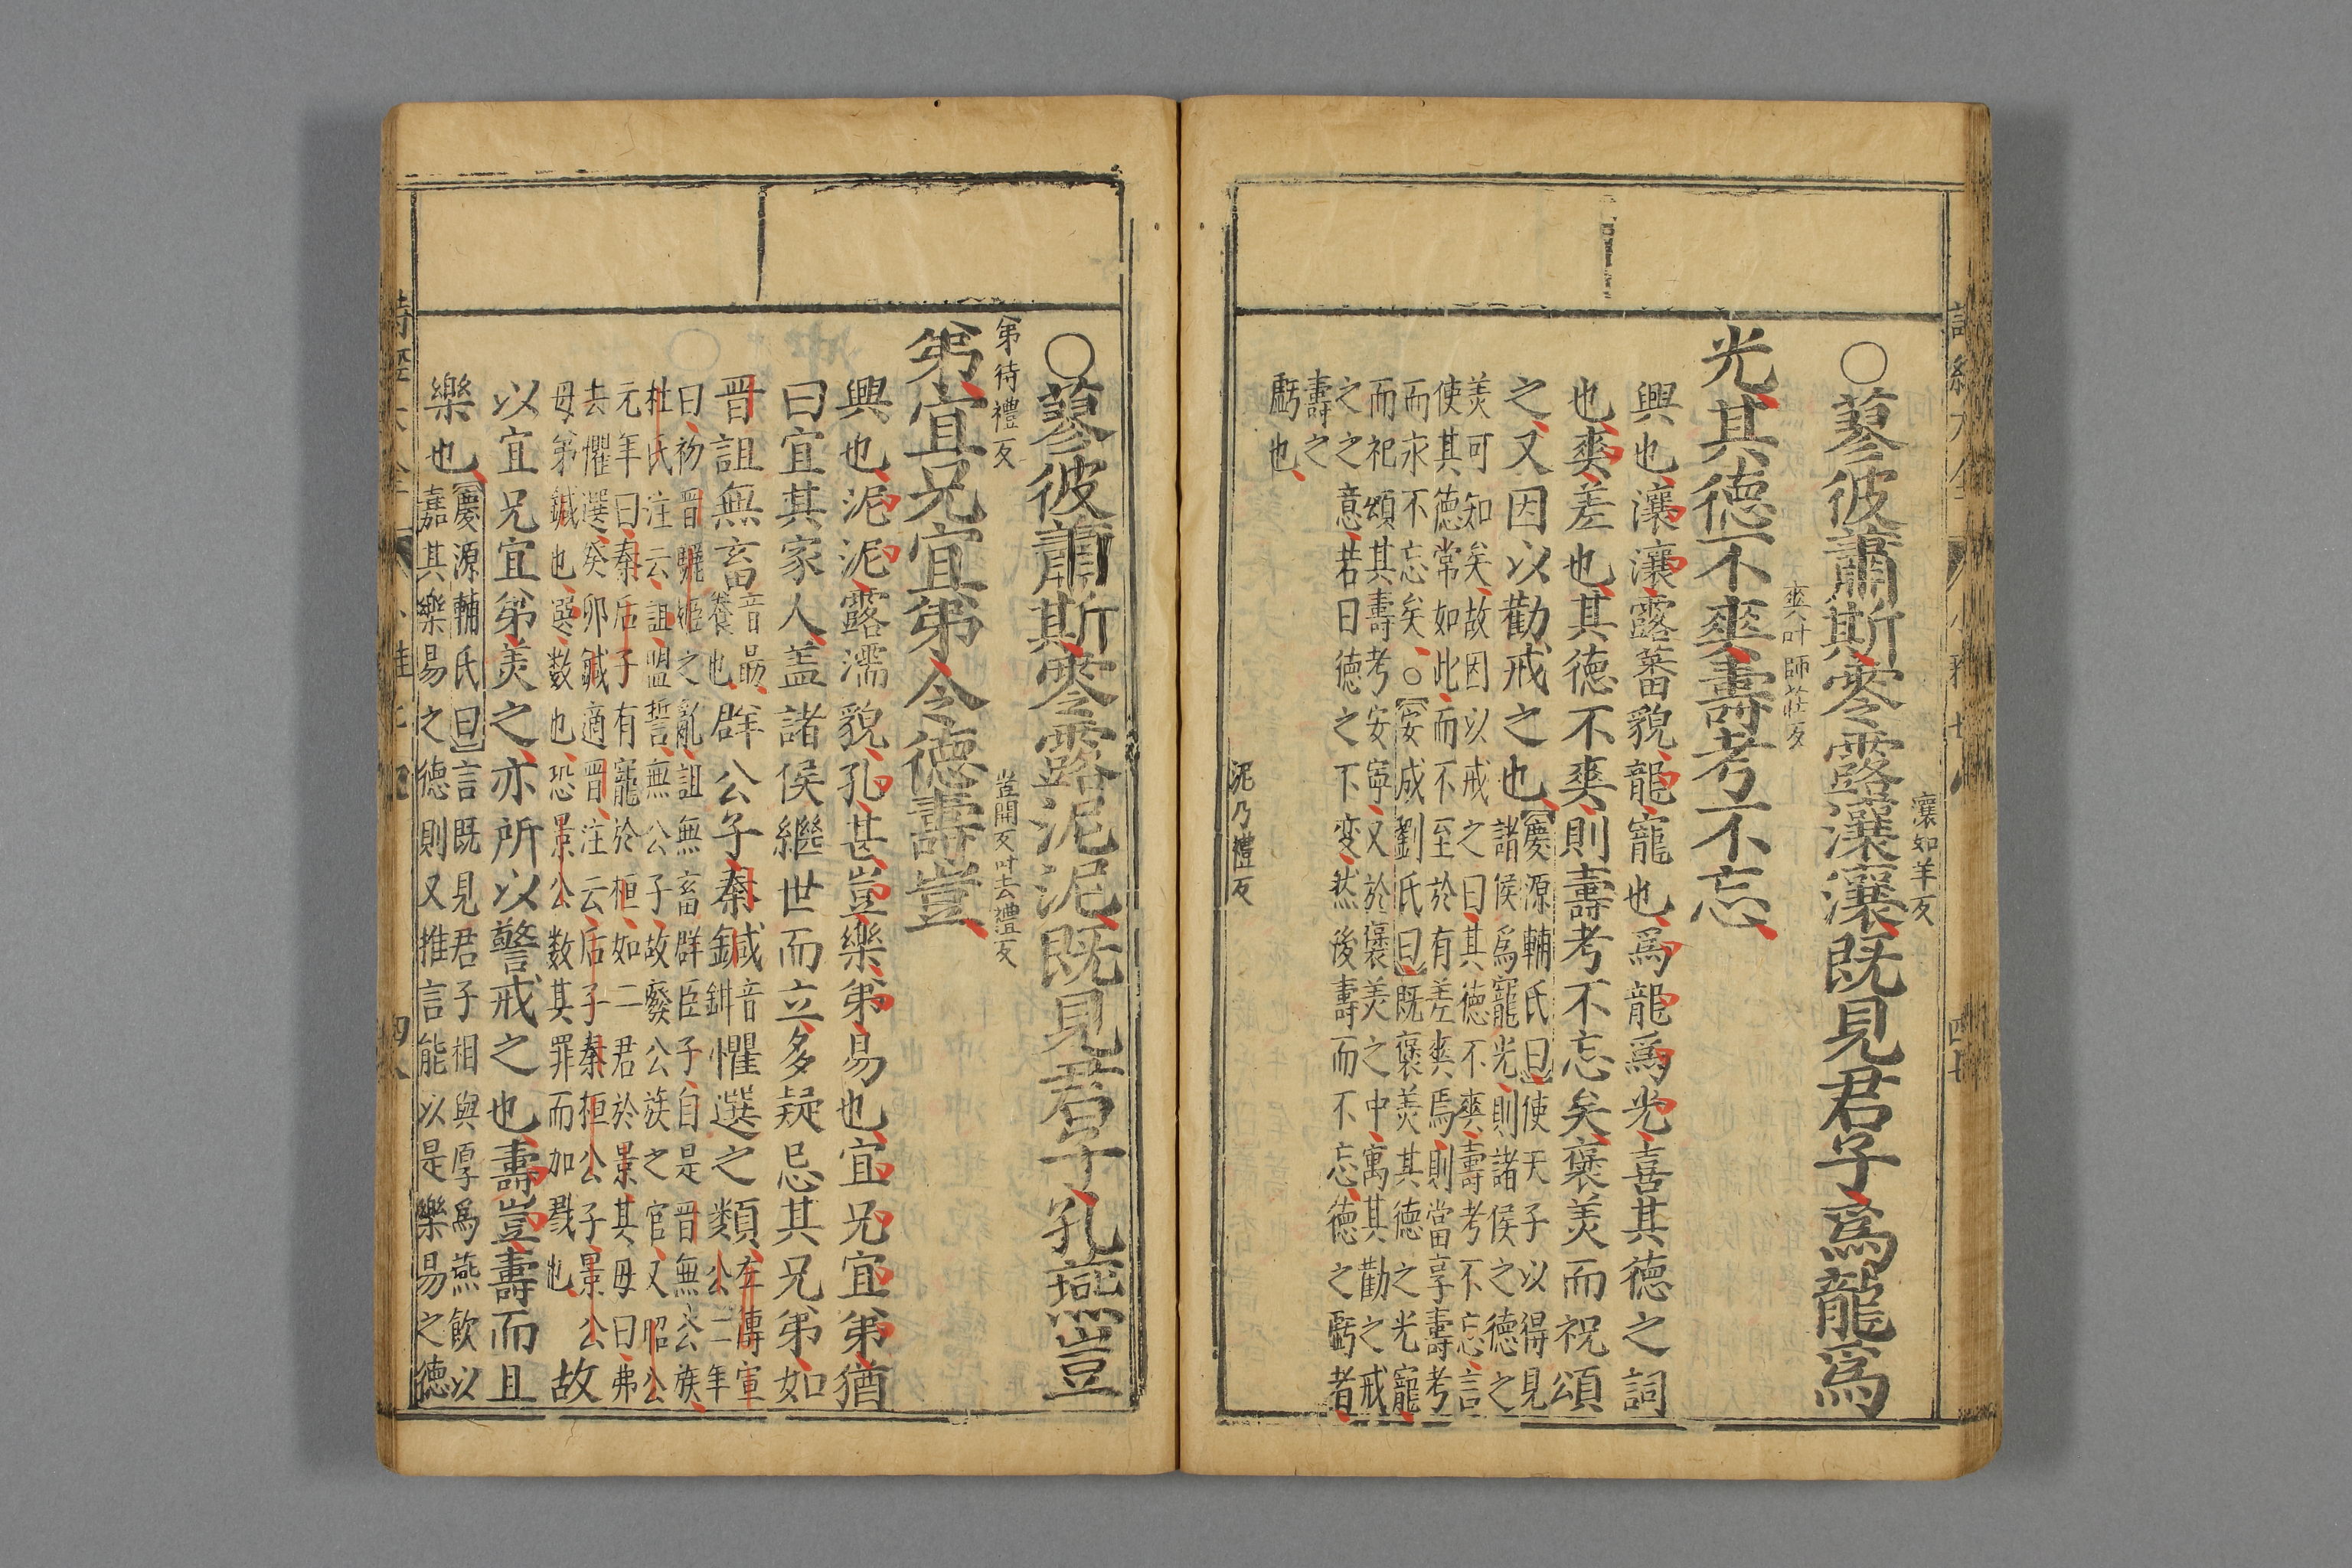 瀼如羊反
○蓼彼蕭斯零露瀼瀼既見君子爲龍爲
爽叶師莊反
光其德不爽壽考不忘
興也瀼瀼露蕃貌龍寵也爲龍爲光喜其德之詞
也爽差也其德不爽則壽考不忘矣褒美而祝頌
之又因以勸戒之也
慶源輔氏曰使天子以得見
諸侯爲寵光則諸侯之德之
美可知矣故因以戒之曰其德不爽壽考不忘言
使其德常如此而不至於有差爽焉則當享壽考
而永不忘矣○安成劉氏曰既褒美其德之光寵
而祀頌其壽考安寧又於褒美之中寓其勸之戒
之之意若曰德之下变然後壽而不忘德之虧者
壽之
虧也
泥乃禮反
○蓼彼蕭斯零露泥泥既見君子孔燕豈
弟待禮反
豈開反叶去禮反
弟宜兄宜弟令德壽豈
興也泥泥露濡貌孔甚豈樂弟易也宜兄宜弟猶
曰宜其家人盖諸侯繼世而立多疑忌其兄弟如
晋詛無畜音勗養也羣公子秦鍼音鉗懼選之類
左傳宣公二年
曰初晋驪姬之亂詛無畜群臣子自是晋無公族
杜氏注云詛盟誓無公子故廢公族之官又昭公
元年曰秦后子有寵於桓如二君於景其毋曰弗
去懼選癸卯鍼適晋注云后子秦桓公子景公
毋弟鍼也選数也恐景公数其罪而加戮也
故
以宜兄宜弟美之亦所以警戒之也壽豈壽而且
樂也
慶源輔氏曰言既見君子相與厚爲燕飲以
嘉其樂易之德則又推言能以是樂易之德